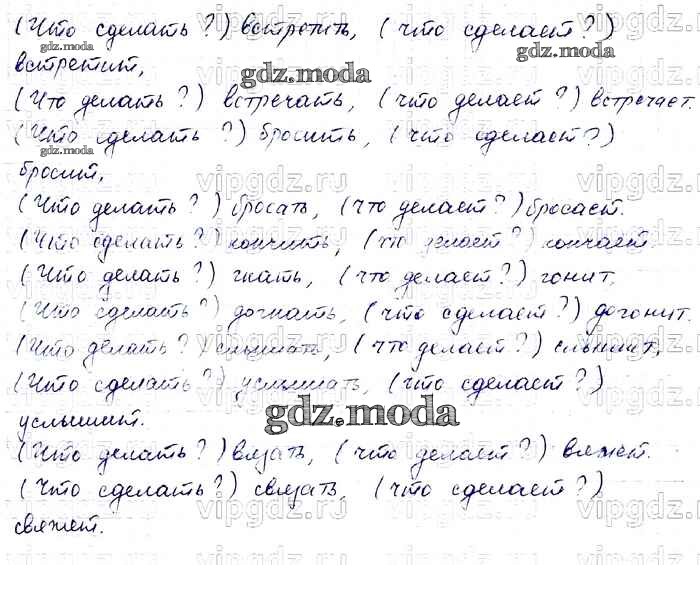 (Что сделать?) встретить, (что сделает?)
встретит,
(Что делать?) встречать, (что делает?) встречает.
(Что сделать?) бросить, (что сделает?)
бросит,
(Что делать?) бросать, (что делает?) бросает.
(Что сделать?) кончить, (что делает?) кончает.
(Что делать?) гнать, (что делает?) гонит,
(Что сделать?) догнать, (что сделает?) догонит.
(Что делать?) слышать, (что делает?) слышит,
(Что сделать?) услышать, (что сделает?)
услышит.
gdz.moda
(Что делать?) вязать, (что делает?) вяжет.
(Что сделать?) связать, (что сделает?)
свяжет.